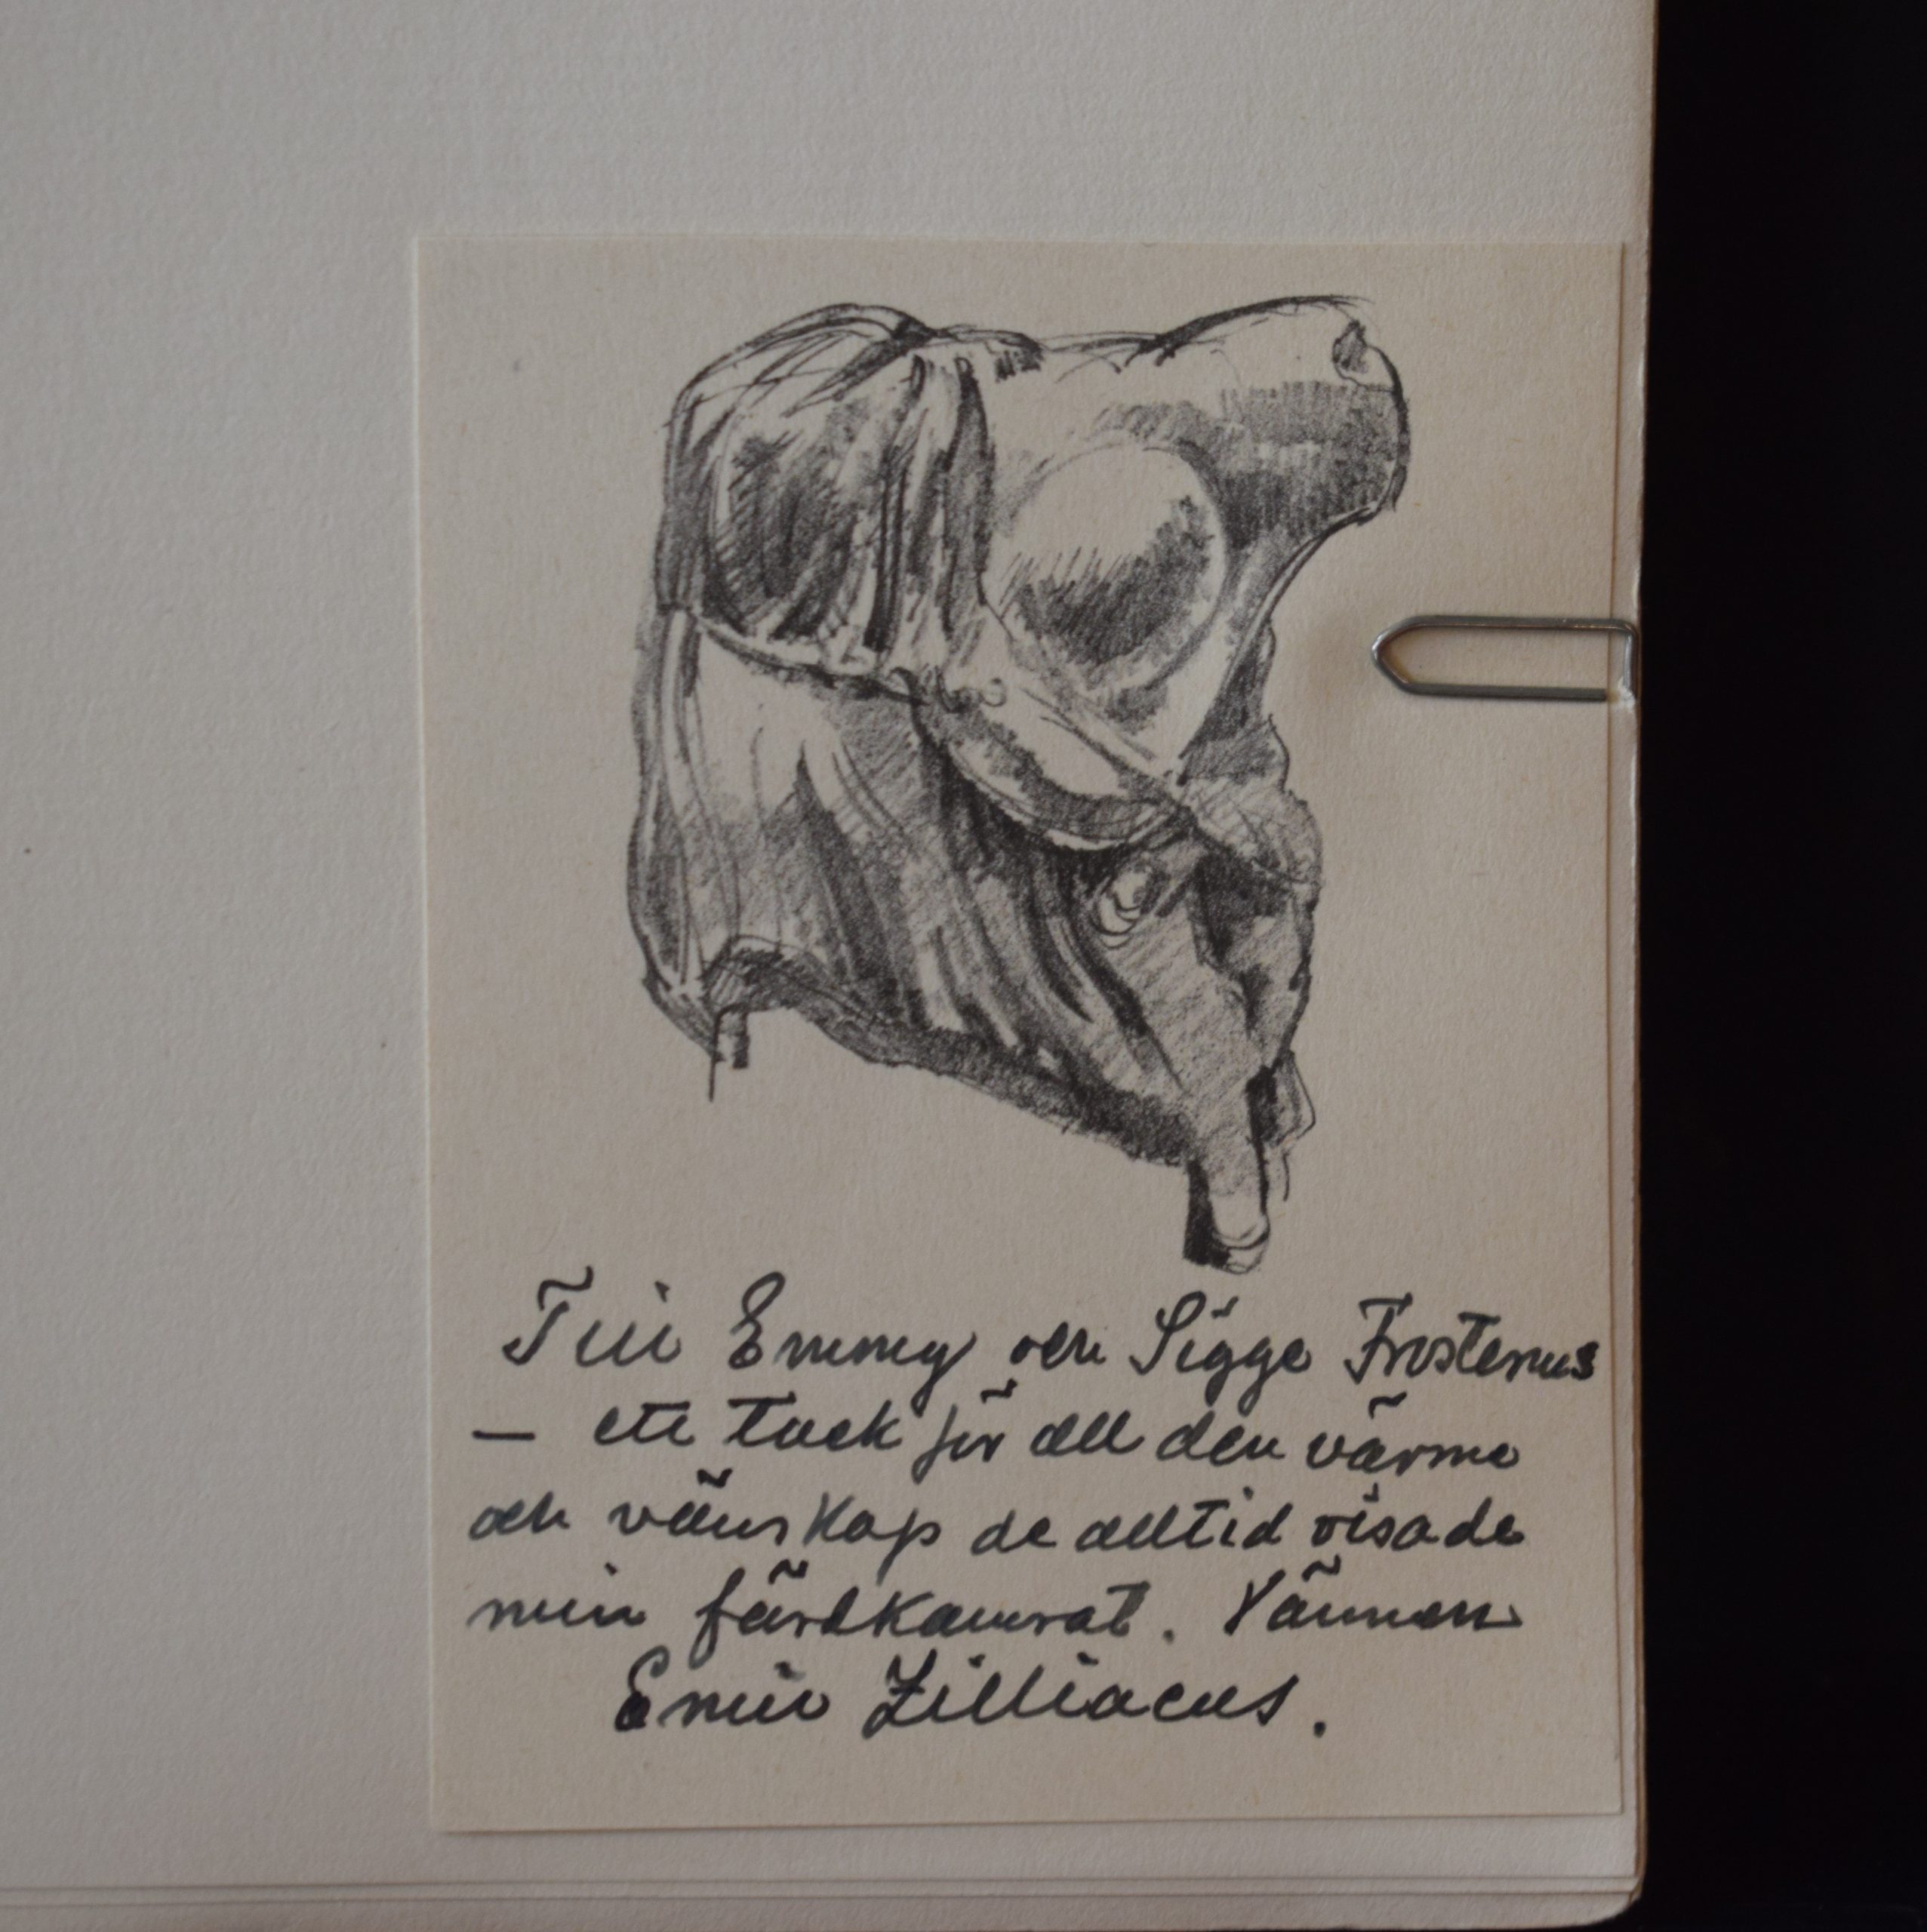 Till Emmy och Sigge Frosterus
— ett tack för all den värme
och vänskap de alltid visade
min färdkamrat. Vännen
Emil Zilliacus.